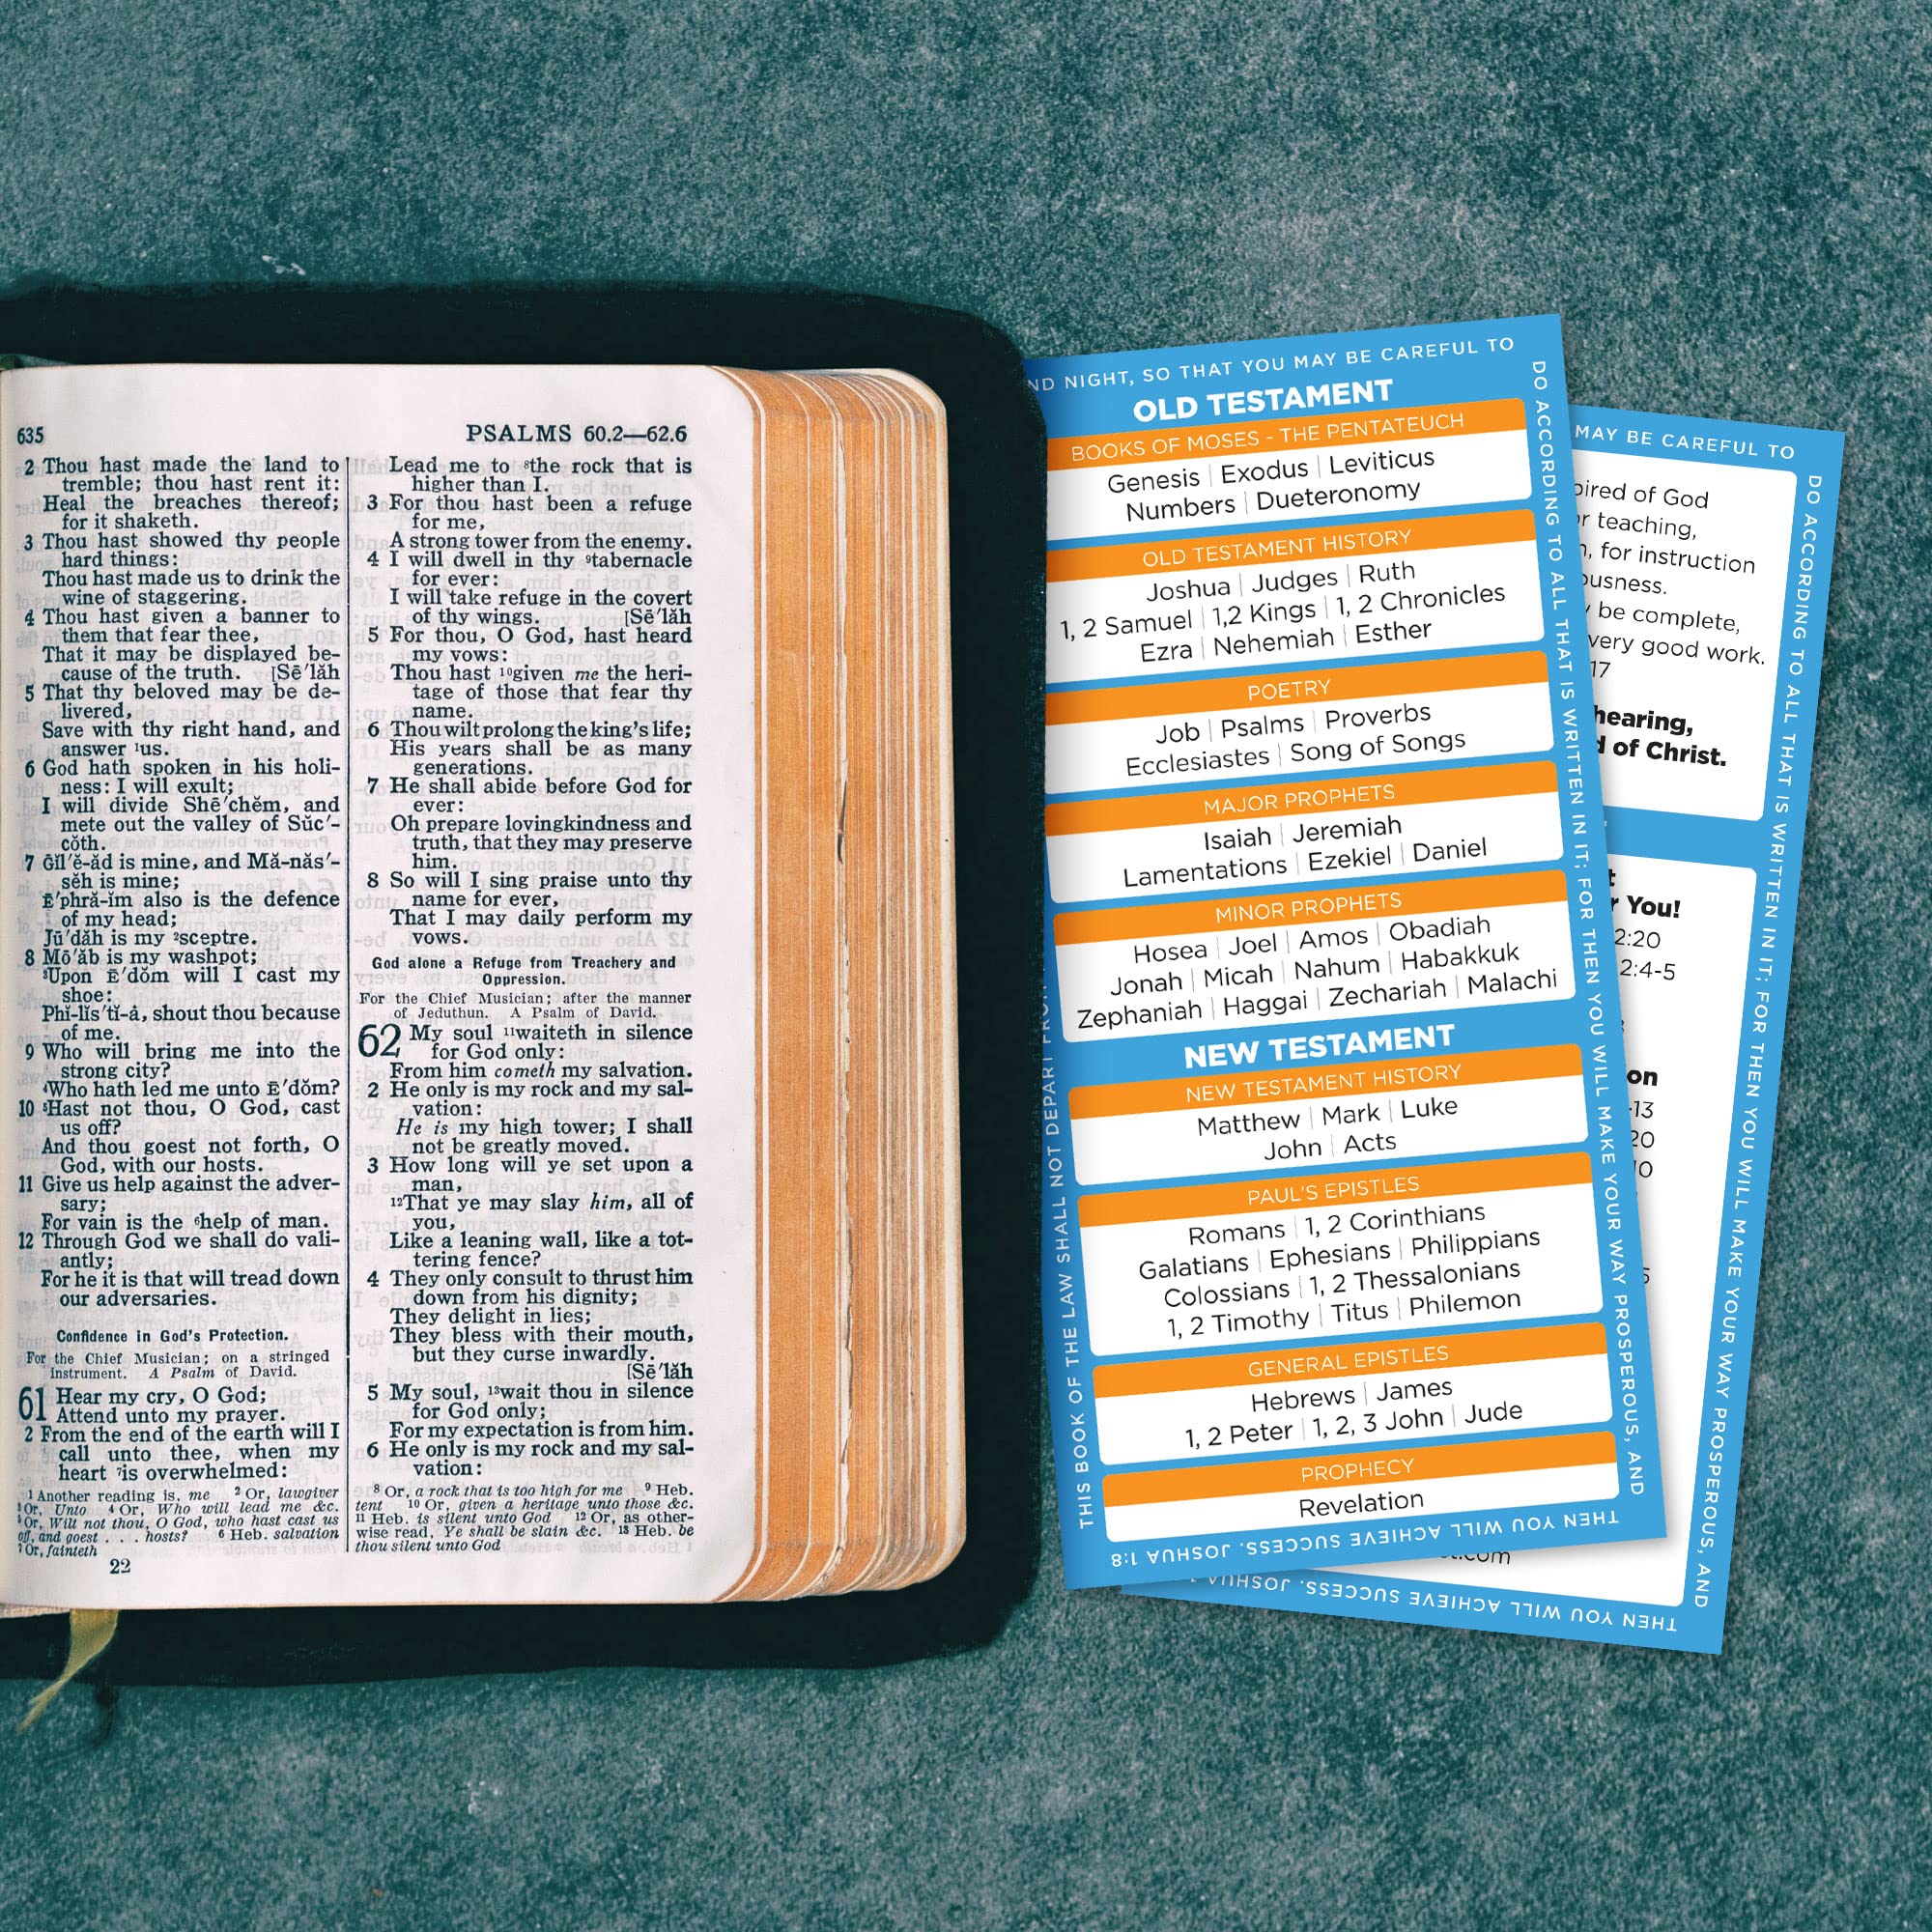 635
PSALMS 60.2—62.6
2 Thou hast made the land to
tremble; thou hast rent it:
Heal the breaches thereof;
for it shaketh.
3 Thou hast showed thy people
hard things:
Thou hast made us to drink the
wine of staggering.
4 Thou hast given a banner to
them that fear thee,
That it may be displayed be-
cause of the truth. [Sē′lăh
5 That thy beloved may be de-
livered,
Save with thy right hand, and
answer ¹us.
6 God hath spoken in his holi-
ness: I will exult;
I will divide Shē′chĕm, and
mete out the valley of Sŭc′-
cōth.
7 Ḡĭl′ĕ-ăd is mine, and Mă-năs′-
sĕh is mine;
Ē′phră-ĭm also is the defence
of my head;
Jū′dăh is my ²sceptre.
8 Mō′ăb is my washpot;
³Upon Ē′dŏm will I cast my
shoe:
Phĭ-lĭs′tĭ-ȧ, shout thou because
of me.
9 Who will bring me into the
strong city?
⁴Who hath led me unto Ē′dŏm?
10 ⁵Hast not thou, O God, cast
us off?
And thou goest not forth, O
God, with our hosts.
11 Give us help against the adver-
sary;
For vain is the ⁶help of man.
12 Through God we shall do vali-
antly;
For he it is that will tread down
our adversaries.
Confidence in God's Protection.
For the Chief Musician; on a stringed
instrument. A Psalm of David.
61 Hear my cry, O God;
Attend unto my prayer.
2 From the end of the earth will I
call unto thee, when my
heart ⁷is overwhelmed:
¹ Another reading is, me ² Or, lawgiver
³ Or, Unto ⁴ Or, Who will lead me &c.
⁵ Or, Wilt not thou, O God, who hast cast us
off, and goest . . . hosts? ⁶ Heb. salvation
⁷ Or, fainteth
22
Lead me to ⁸the rock that is
higher than I.
3 For thou hast been a refuge
for me,
A strong tower from the enemy.
4 I will dwell in thy ⁹tabernacle
for ever:
I will take refuge in the covert
of thy wings. [Sē′lăh
5 For thou, O God, hast heard
my vows:
Thou hast ¹⁰given me the heri-
tage of those that fear thy
name.
6 Thou wilt prolong the king's life;
His years shall be as many
generations.
7 He shall abide before God for
ever:
Oh prepare lovingkindness and
truth, that they may preserve
him.
8 So will I sing praise unto thy
name for ever,
That I may daily perform my
vows.
God alone a Refuge from Treachery and
Oppression.
For the Chief Musician; after the manner
of Jeduthun. A Psalm of David.
62 My soul ¹¹waiteth in silence
for God only:
From him cometh my salvation.
2 He only is my rock and my sal-
vation:
He is my high tower; I shall
not be greatly moved.
3 How long will ye set upon a
man,
¹²That ye may slay him, all of
you,
Like a leaning wall, like a tot-
tering fence?
4 They only consult to thrust him
down from his dignity;
They delight in lies;
They bless with their mouth,
but they curse inwardly.
[Sē′lăh
5 My soul, ¹³wait thou in silence
for God only;
For my expectation is from him.
6 He only is my rock and my sal-
vation:
⁸ Or, a rock that is too high for me ⁹ Heb.
tent ¹⁰ Or, given a heritage unto those &c.
¹¹ Heb. is silent unto God ¹² Or, as other-
wise read, Ye shall be slain &c. ¹³ Heb. be
thou silent unto God
THIS BOOK OF THE LAW SHALL NOT DEPART
NIGHT, SO THAT YOU MAY BE CAREFUL TO
DO ACCORDING TO ALL THAT IS WRITTEN IN IT; FOR THEN YOU WILL MAKE YOUR WAY PROSPEROUS, AND
THEN YOU WILL ACHIEVE SUCCESS. JOSHUA 1:8
OLD TESTAMENT
BOOKS OF MOSES - THE PENTATEUCH
Genesis | Exodus | Leviticus
Numbers | Dueteronomy
OLD TESTAMENT HISTORY
Joshua | Judges | Ruth
1, 2 Samuel | 1,2 Kings | 1, 2 Chronicles
Ezra | Nehemiah | Esther
POETRY
Job | Psalms | Proverbs
Ecclesiastes | Song of Songs
MAJOR PROPHETS
Isaiah | Jeremiah
Lamentations | Ezekiel | Daniel
MINOR PROPHETS
Hosea | Joel | Amos | Obadiah
Jonah | Micah | Nahum | Habakkuk
Zephaniah | Haggai | Zechariah | Malachi
NEW TESTAMENT
NEW TESTAMENT HISTORY
Matthew | Mark | Luke
John | Acts
PAUL'S EPISTLES
Romans | 1, 2 Corinthians
Galatians | Ephesians | Philippians
Colossians | 1, 2 Thessalonians
1, 2 Timothy | Titus | Philemon
GENERAL EPISTLES
Hebrews | James
1, 2 Peter | 1, 2, 3 John | Jude
PROPHECY
Revelation
MAY BE CAREFUL TO
DO ACCORDING TO ALL THAT IS WRITTEN IN IT; FOR THEN YOU WILL MAKE YOUR WAY PROSPEROUS, AND
THEN YOU WILL ACHIEVE SUCCESS. JOSHUA
of God
teaching,
for instruction
be complete,
good work.
17
hearing,
of Christ.
You!
2:20
2:4-5
.com